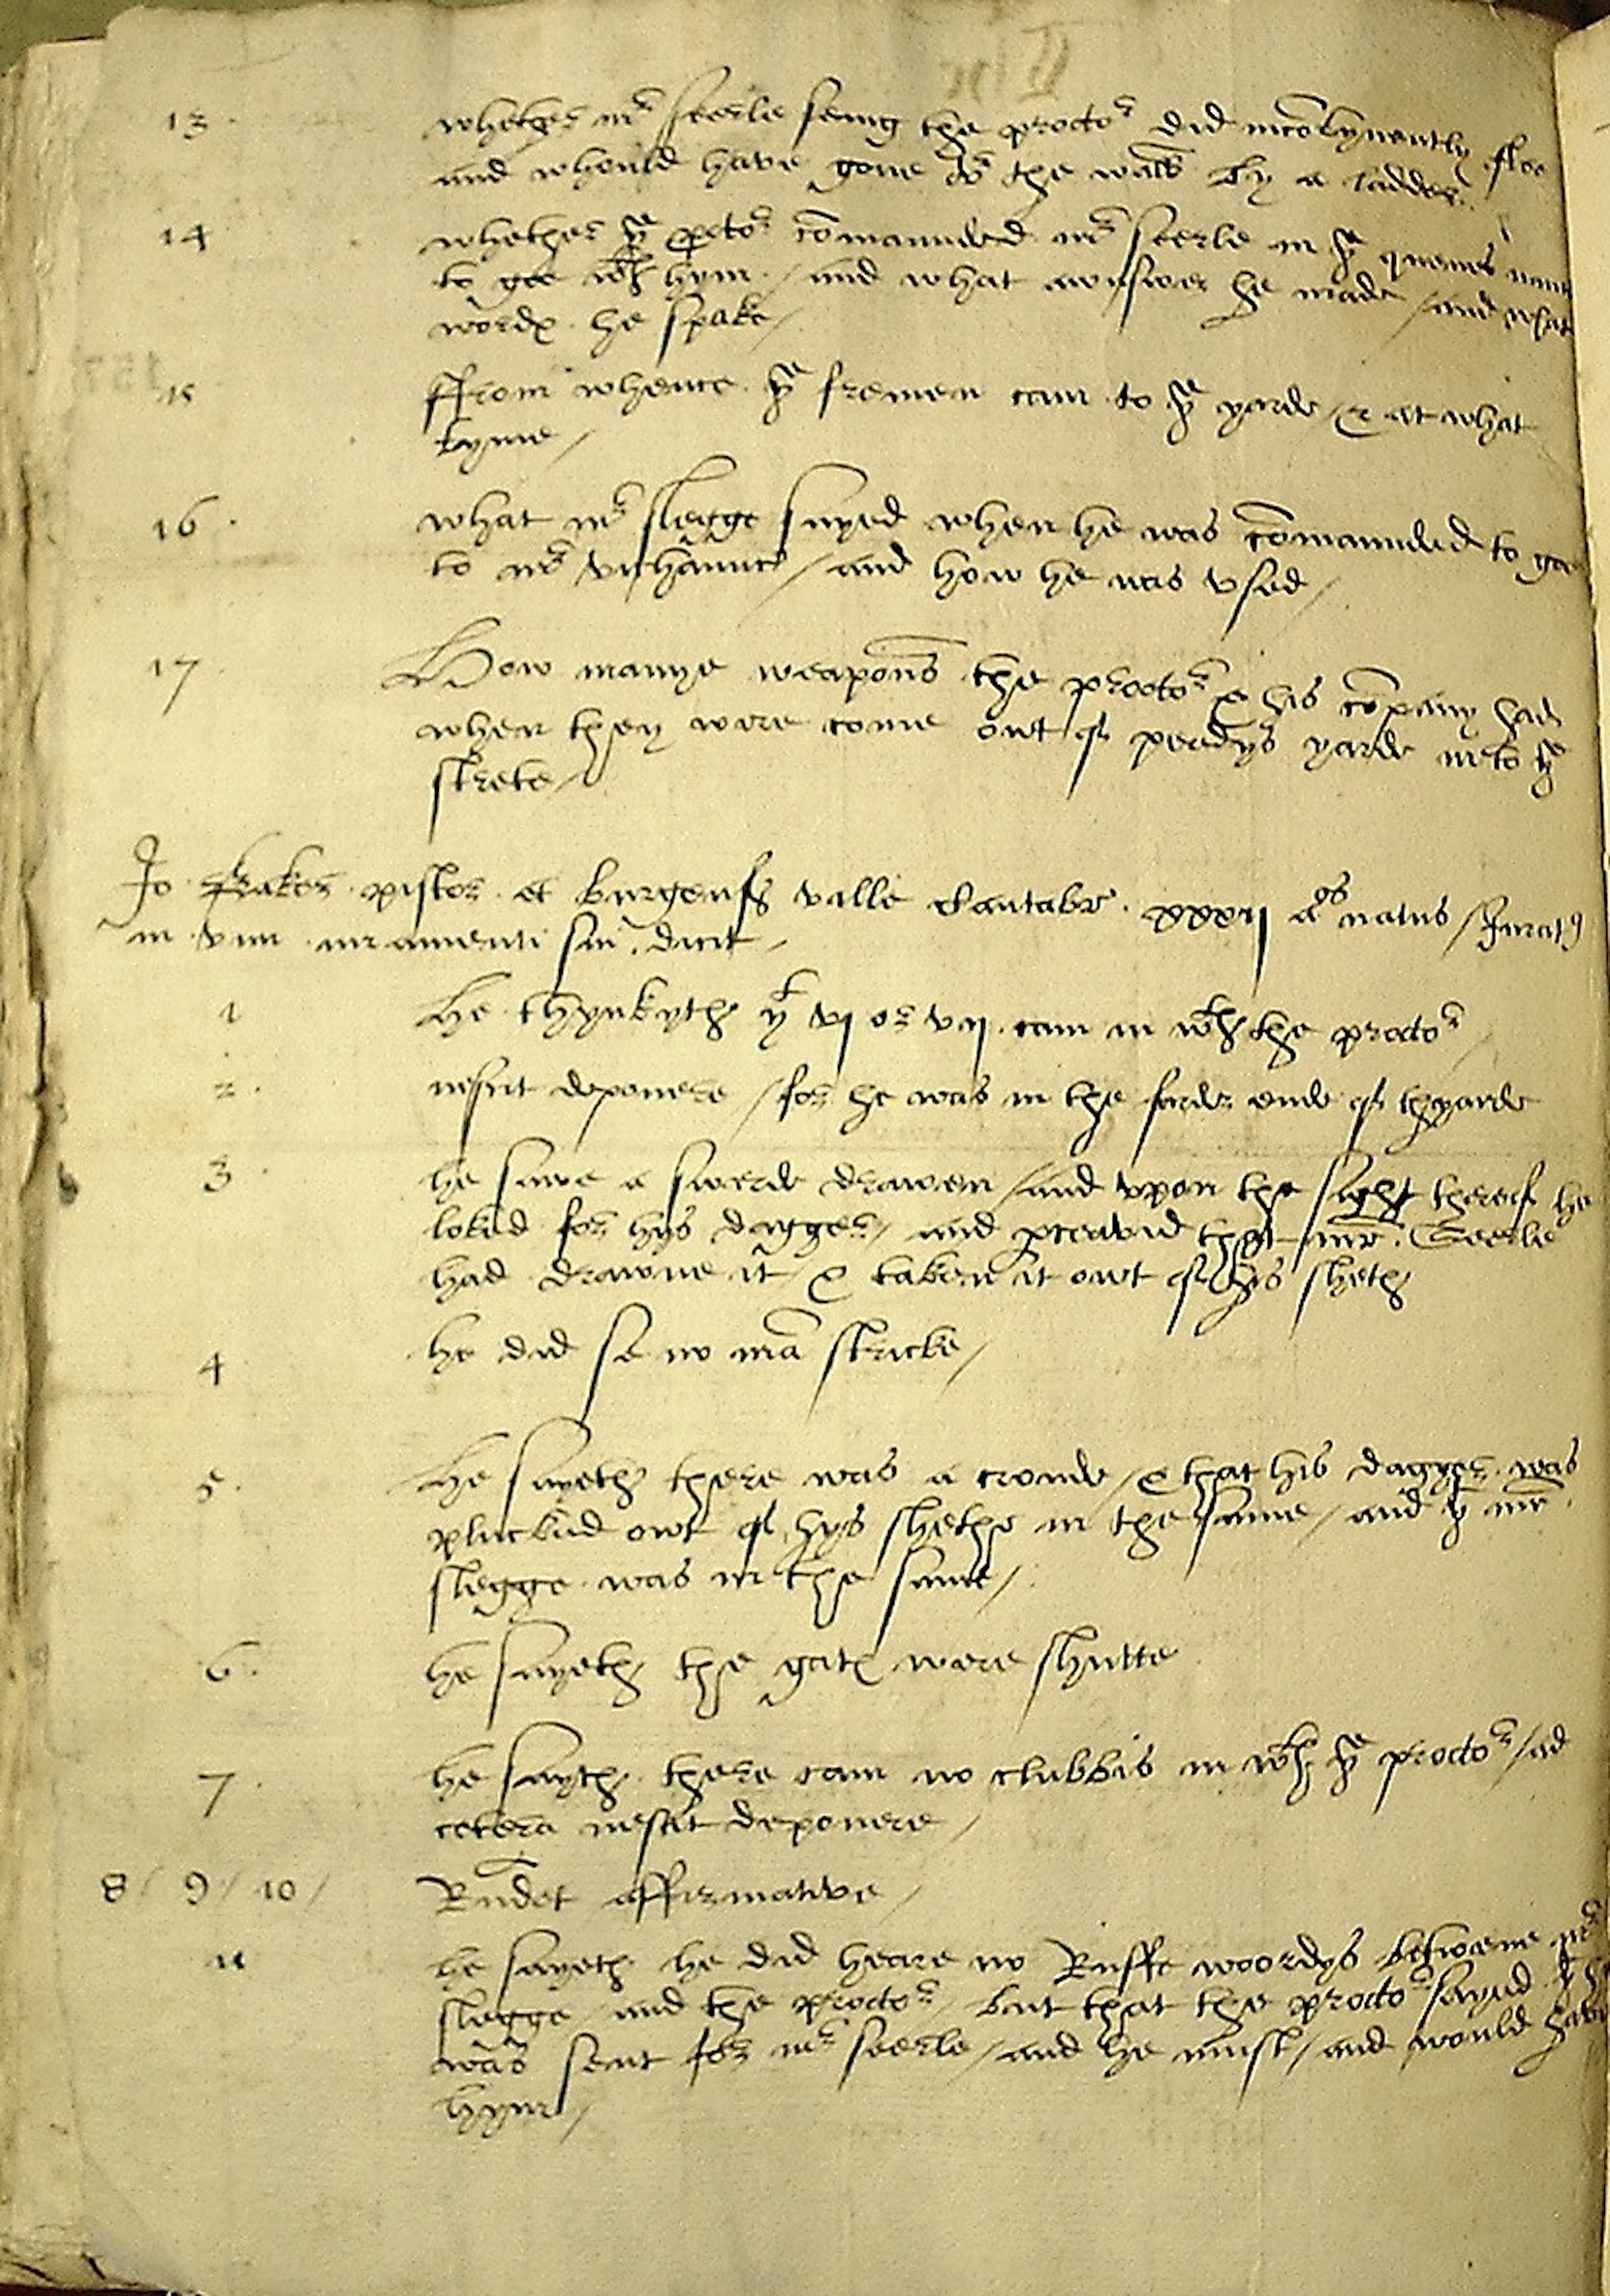 13. whether mr Seerle seing the proctor did incōtynently flee
and whould have gone ov̄ the walls by a ladder.
14 whether ye proctor cōmaunded mr Seerle in ye quenes name
to goe wth hym / and what awnswer he made / and what
wordes he spake /
15 ffrom whence ye fremen cam to ye yarde / & at what
tyme /
16. what mr slegge sayed when he was cōmaunded to goe
to mr vichaunc / and how he was vsed /
17 How manye weapons the proctor & his cōpany had
when they were come owt of perdys yarde into ye
strete /
Jo pistor et burgens ville Cantabr. xxxij aos natus / Jurat9
in vim iuramenti sui dicit /
1 He thynkyth yt vj or vij cam in wth the proctor /
2. nescit deponere / for he was in the farder ende of thyarde
3. he sawe a swerde drawen / and vpon the sight therof he
lokid for hys dagger / and pceavid that mr. Seerle
had drawne it / & taken it owt of his sheth
4 he did se no mā stricke /
5. He sayeth there was a crowde / & that his dagger was
pluckid owt of hys shethe in the same / and yt mr.
slegge was in the same /
6. he sayeth the gates were shutte
7. he sayth there cam no clubbis in wth ye proctor / ad
cetera nescit deponere /
8 / 9 / 10 / Rñdet affirmative /
11 he sayeth he did heare no Ruffe woordys betwene mr
slegge and the proctor / but that the proctor sayed
was sent for mr seerle / and he must / and would have
hym /